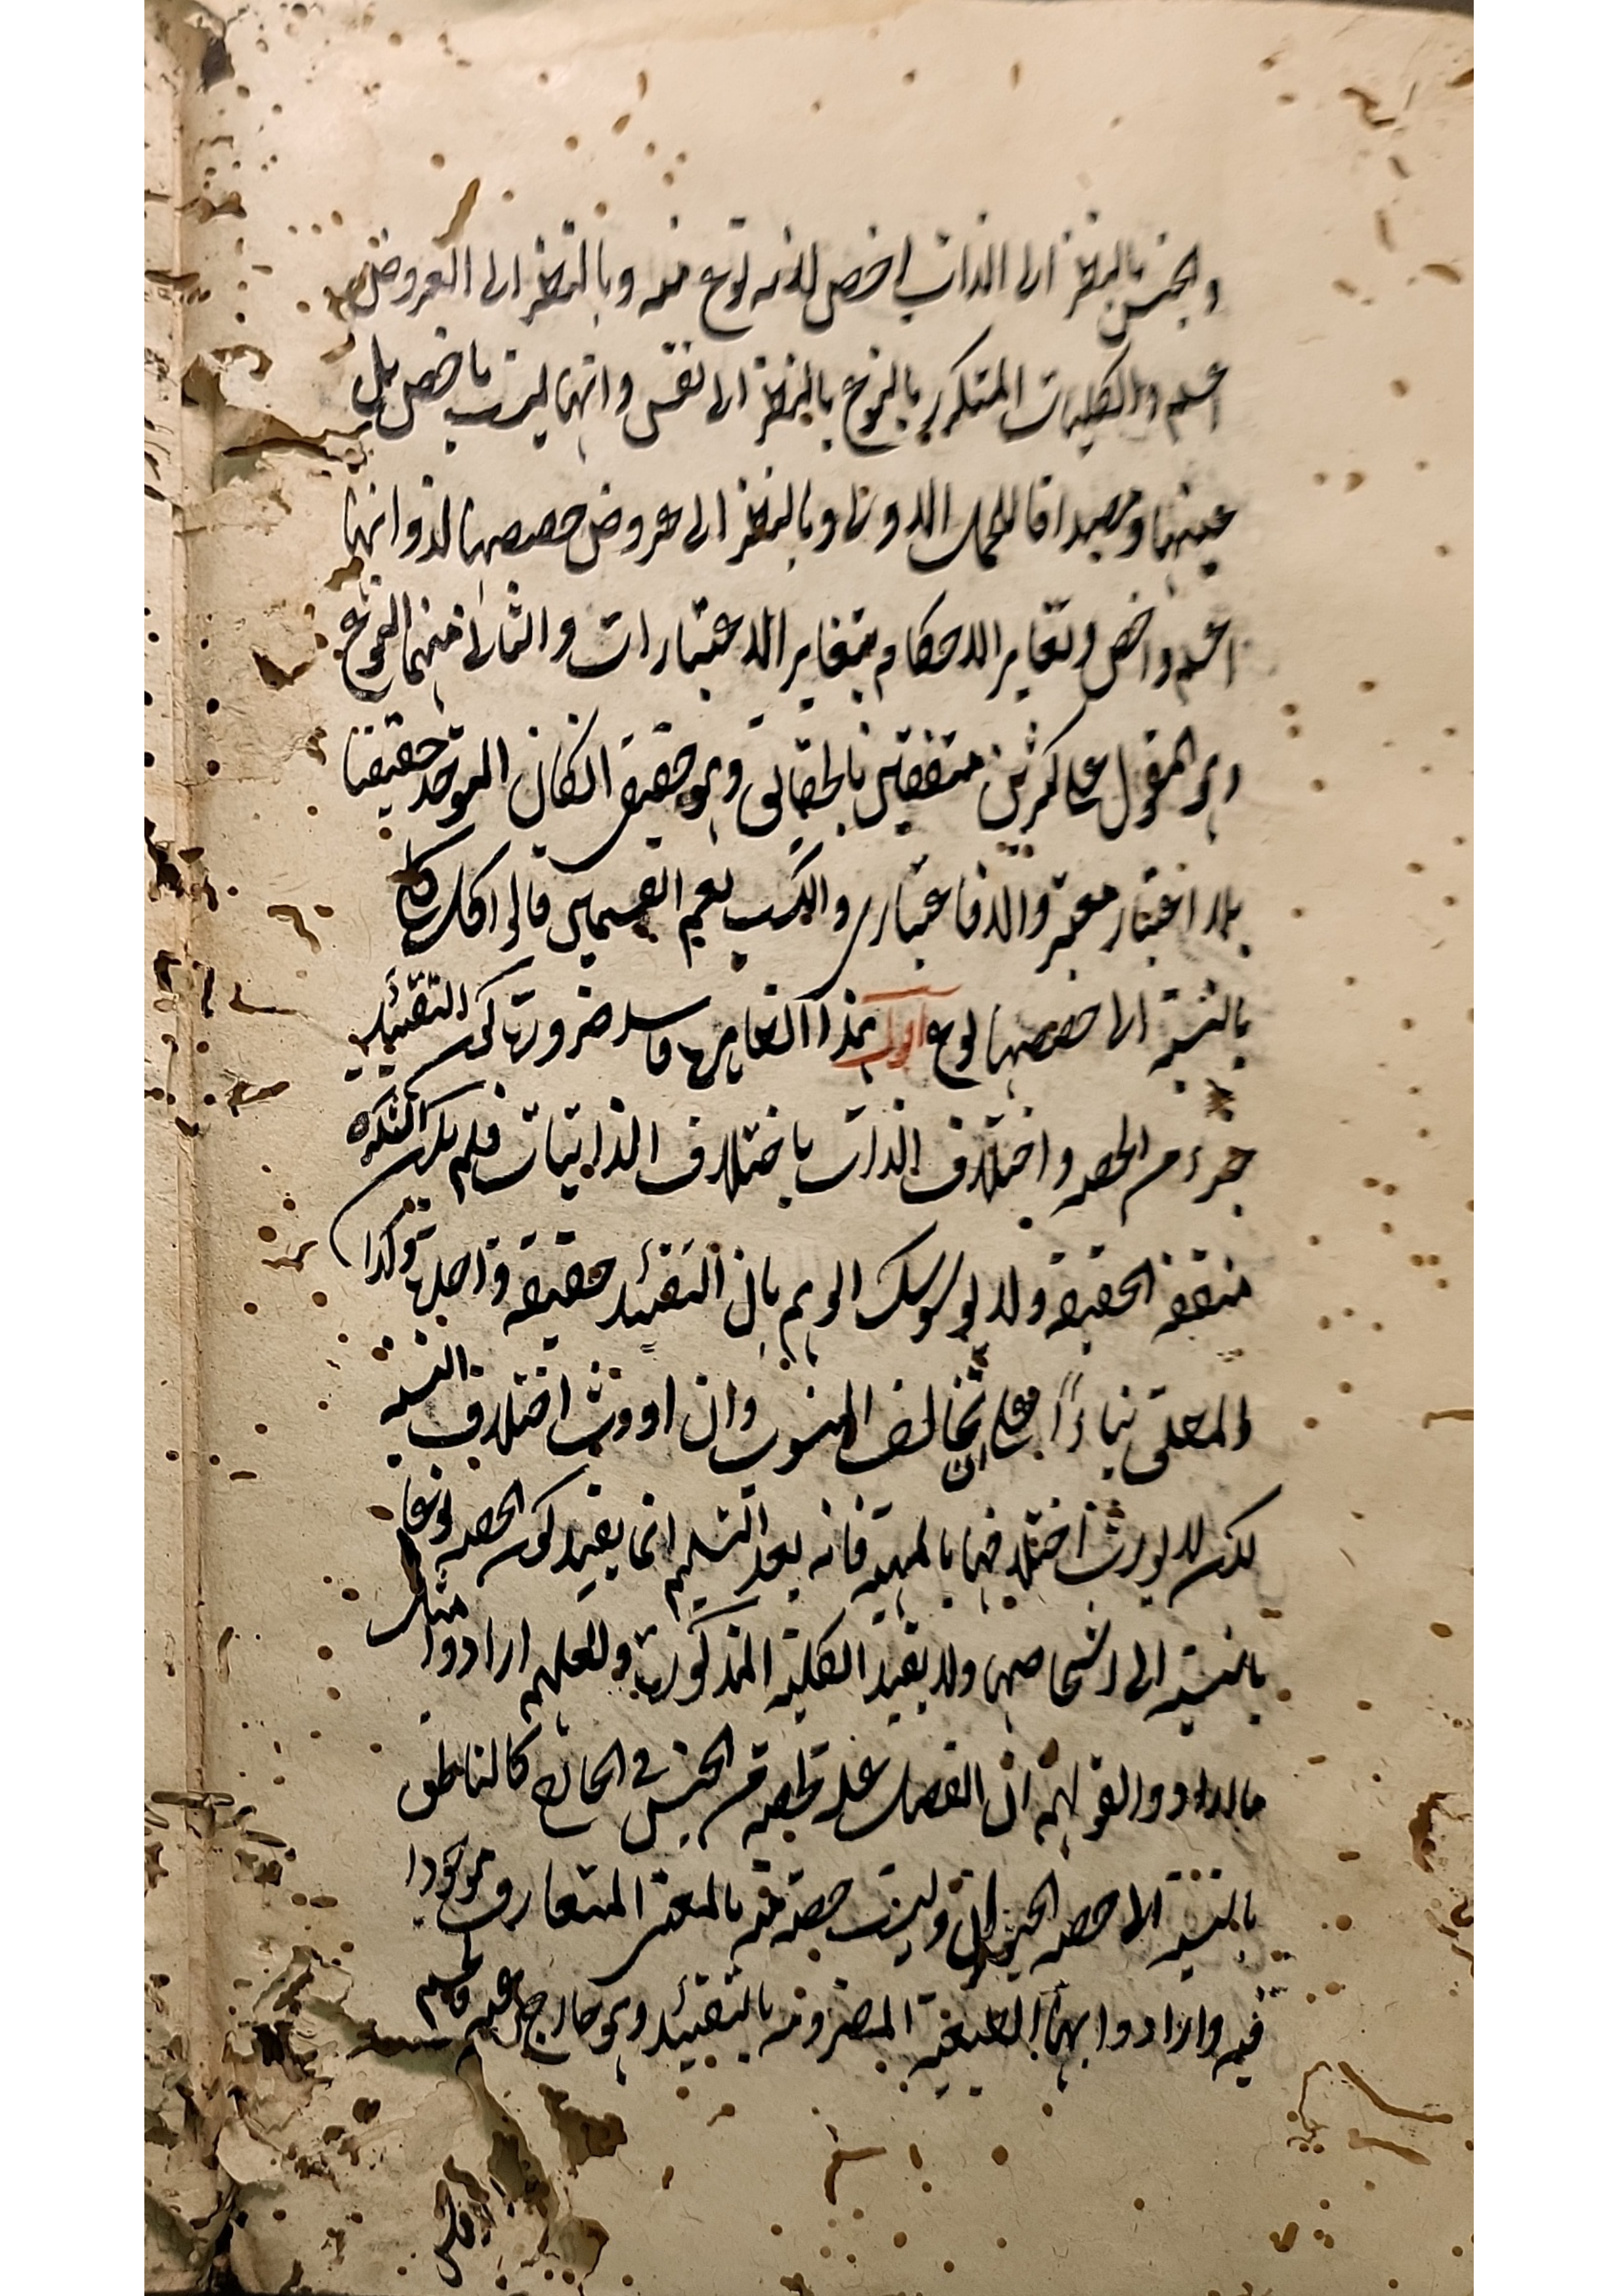 والجنس بالنظر الى الذات اخص لانه نوع منه وبالنظر الى العروض
اعم والكليات المتكرر بالنوع بالنظر الى نفس وانها ليست باخص بل
عينها ومصداقا للحمل الاولى وبالنظر الى عروض حصصها لذواتها
اعم واخص وتغاير الاحكام بتغاير الاعتبارات والثانى منهما النوع
وهو المقول على كثرين متفقين بالحقائق وهو حقيقى انكان الموحد حقيقيا
بلا اعتبار معتبر والا فاعتبارى والكسب يعم القسمين قالوا كل كلى
بالنسبة الى حصصها نوع اقول هذا التعايرها فاسد ضرورت كون التقييد
جزء من الحصه واختلاف الذات باختلاف الذاتيات فلم يكن الكثرة
متفقه الحقيقه ولا يوسوسك الوهم بان التقئيد حقيقه واحدة وكذا
والمعلى بناءً على ان تخالف المنسوب وان اورث اختلاف النسبه
لكن لا يورث اختلافها بالمهية فانه بعد التسليم انما يفيد كون الحصه نوعا
بالنسبة الى اشخاصها ولا يفيد الكليه المذكورة ولعلهم ارادوا مثل
ما ارادوا لقولهم ان الفصل علة لحصه من الجنس فى الخارج كالناطق
بالنسبة الى حصه الحيوان وليست حصة منه بالمعنى المتعارف موجودا
فيه وارادوا بها الطبيعة المقرونه بالتقئيد وهو خارج عنه فافهم